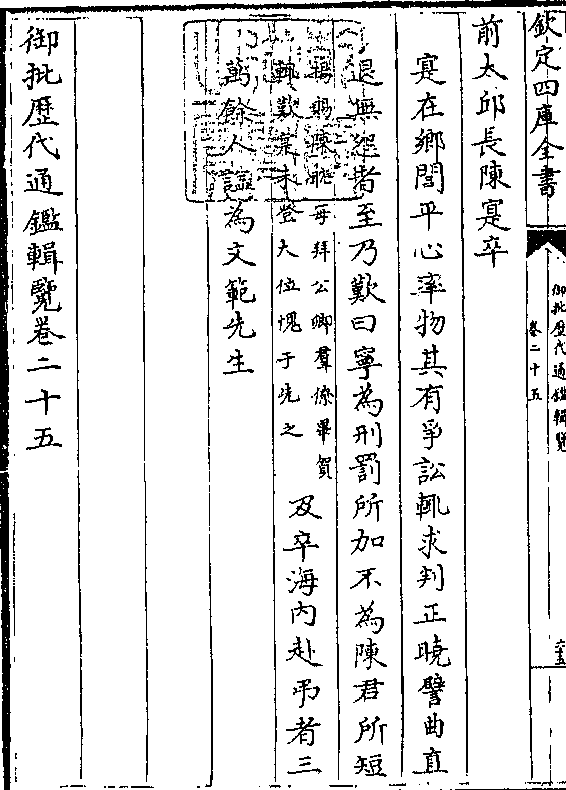 欽定四庫全書
御批歷代通鑑輯覽
卷二十五
前太邱長陳寔卒
寔在鄉閭平心率物其有爭訟輒求判正曉譬曲直
退無怨者至乃歎曰寧為刑罰所加不為陳君所短
楊賜陳耽每拜公卿羣僚畢賀
輒歎寔未登大位愧于先之
及卒海內赴弔者三
萬餘人諡為文範先生
御批歷代通鑑輯覽卷二十五